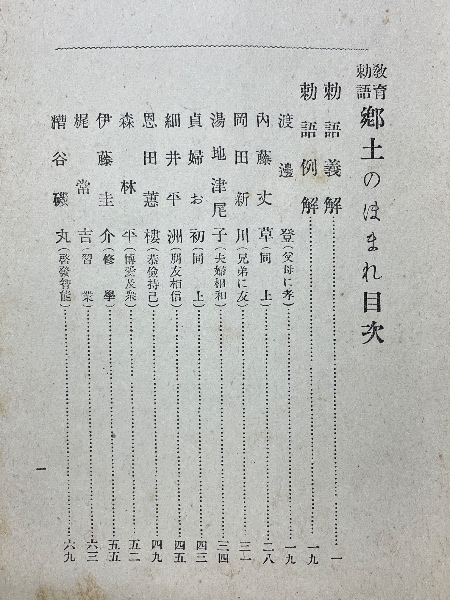 教育勅語 郷土のほまれ目次
勅語義解……一
勅語例解……一九
渡邊登(父母に孝)……一九
内藤丈草(同上)……二八
岡田新川(兄弟に友)……三一
湯地津尾子(夫婦相和)……三四
貞婦お初(同上)……四三
細井平洲(朋友相信)……四五
恩田蕙樓(恭儉持己)……四九
森林平(博愛及衆)……五二
伊藤圭介(修學)……五五
梶常吉(習業)……六三
糟谷磯丸(啓發智能)……六九
一